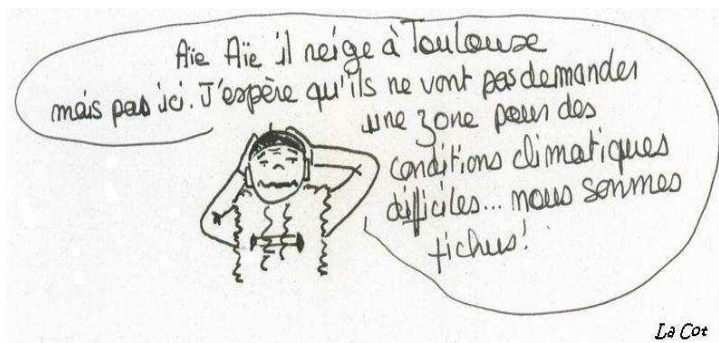 Aïe Aïe il neige à Toulouse
mais pas ici. J'espère qu'ils ne vont pas demander
une zone pour des
conditions climatiques
difficiles... nous sommes
fichus!
La Cot